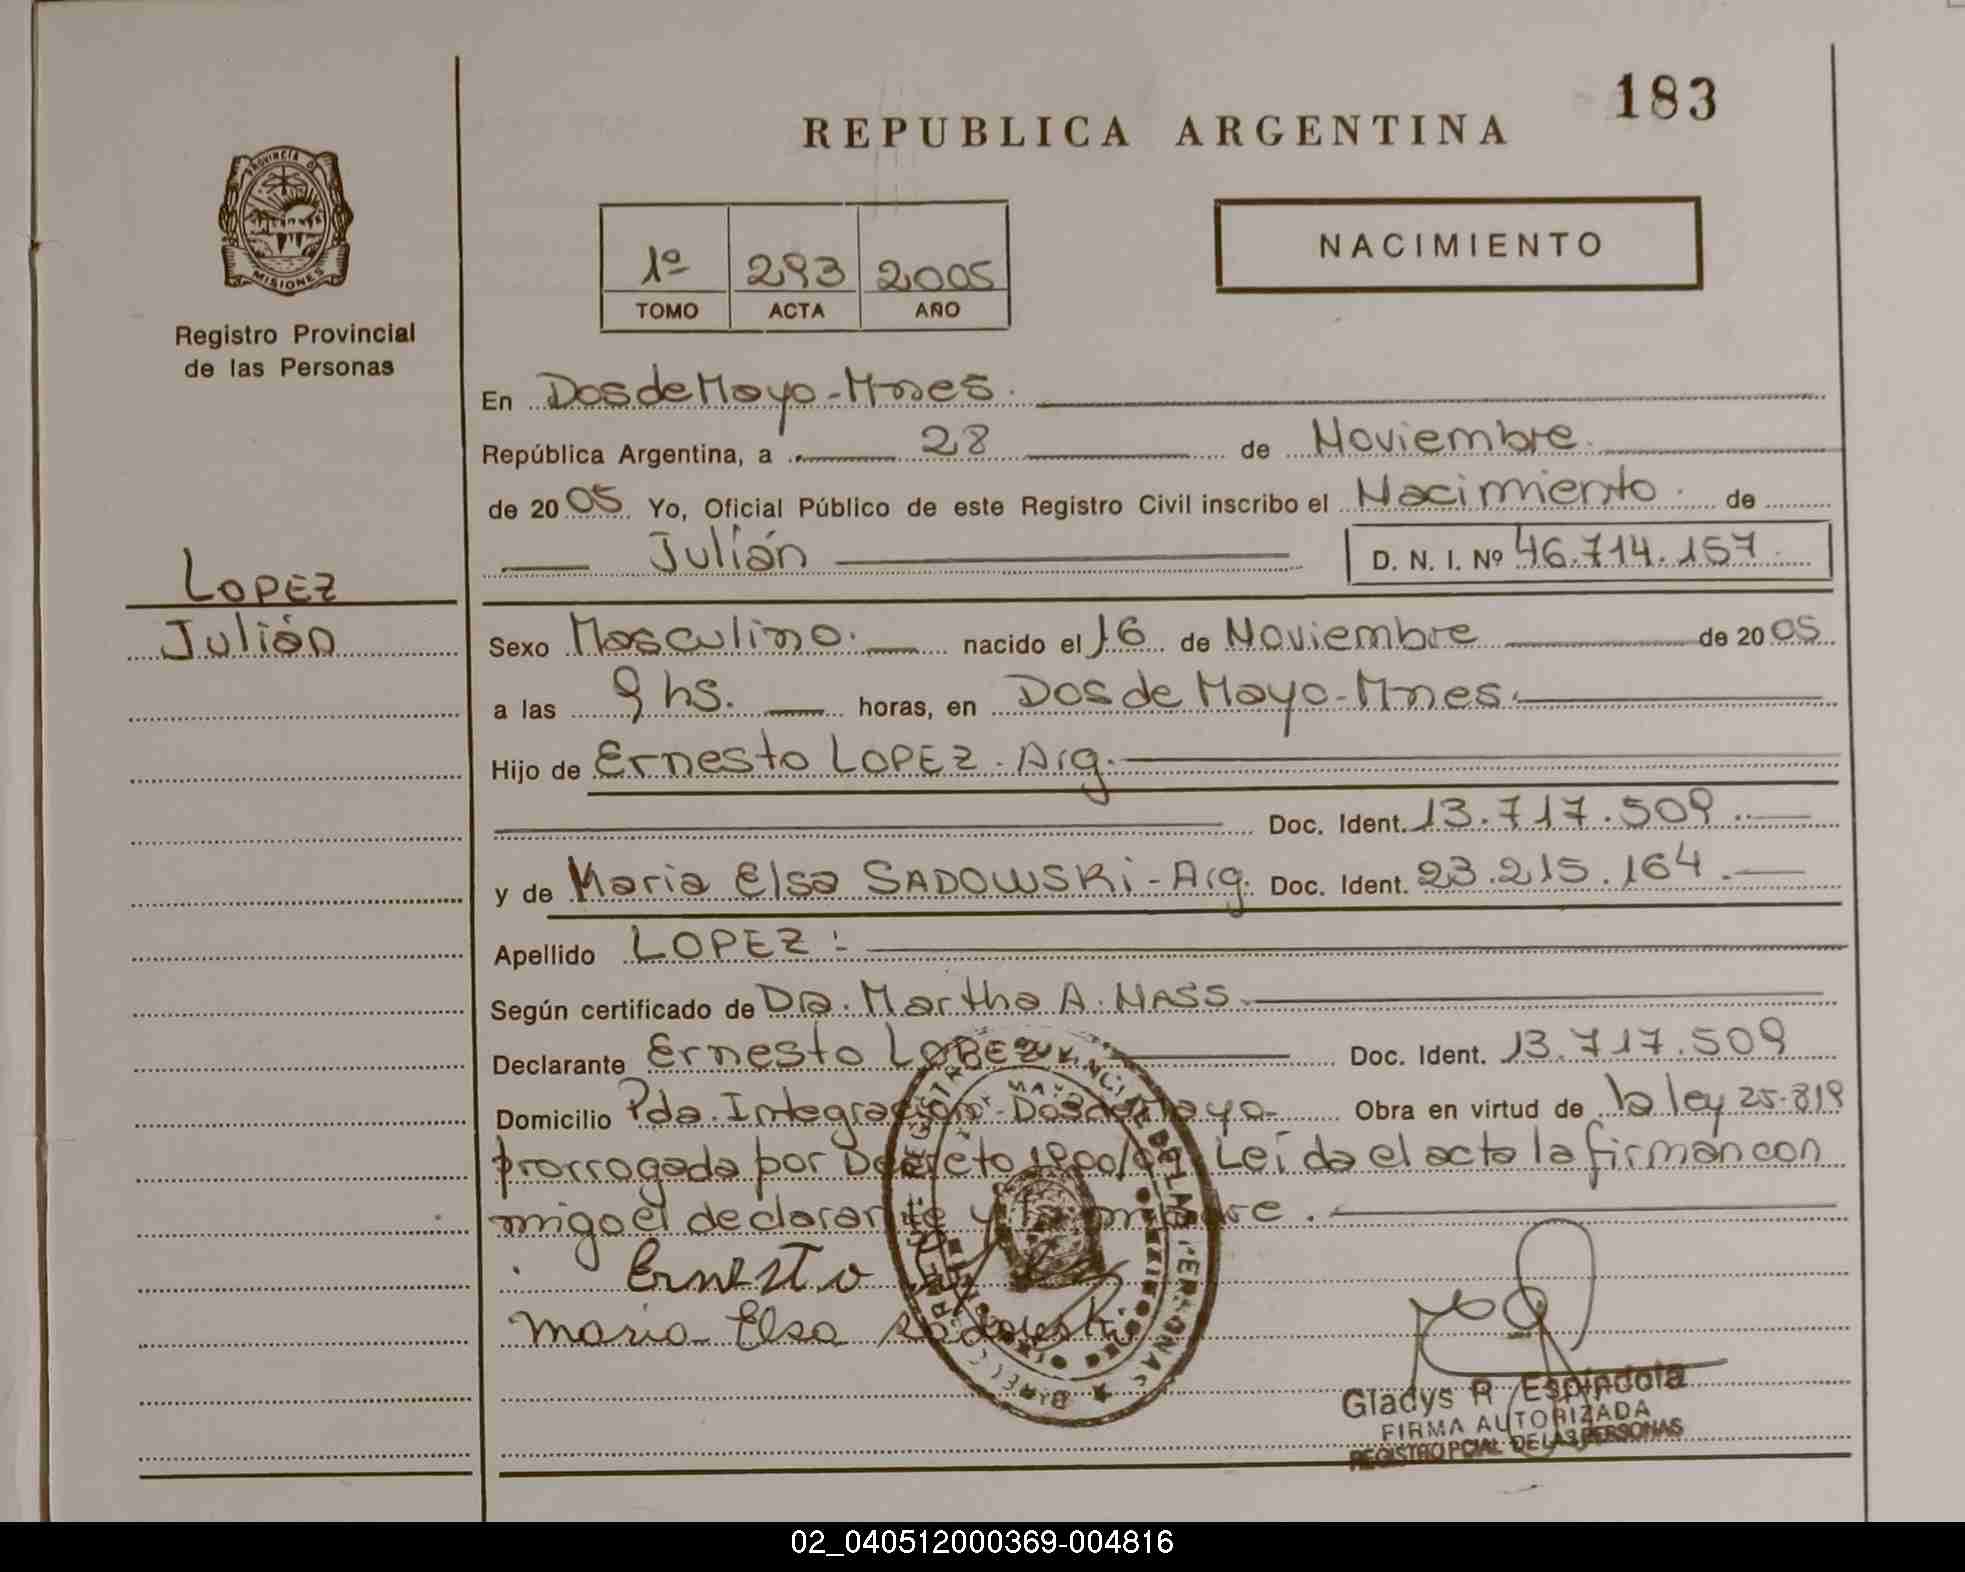 183
REPUBLICA ARGENTINA
PROVINCIA DE
MISIONES
Registro Provincial
de las Personas
1º 293 2005
TOMO ACTA AÑO
NACIMIENTO
En Dos de Mayo - Mnes.
República Argentina, a 28 de Noviembre.
de 2005 Yo, Oficial Público de este Registro Civil inscribo el Nacimiento. de
Julián D. N. I. Nº 46.714.157.
LOPEZ
Julián
Sexo Masculino. nacido el 16 de Noviembre de 2005
a las 9 hs. horas, en Dos de Mayo - Mnes.
Hijo de Ernesto LOPEZ. Arg.
Doc. Ident. 13.717.509.
y de Maria Elsa SADOWSKi - Arg. Doc. Ident. 23.215.164.
Apellido LOPEZ
Según certificado de Dra. Martha A. NASS.
Declarante Ernesto LOPEZ Doc. Ident. 13.717.509
Domicilio Pda. Integración - Dos de Mayo - Obra en virtud de la ley 25.819
prorrogada por Decreto Leída el acta la firman con
migo el declarante y la madre.
Ernesto
Maria Elsa Sadowski
Gladys R Espindola
FIRMA AUTORIZADA
REGISTRO PCIAL DE LAS PERSONAS
02_040512000369-004816